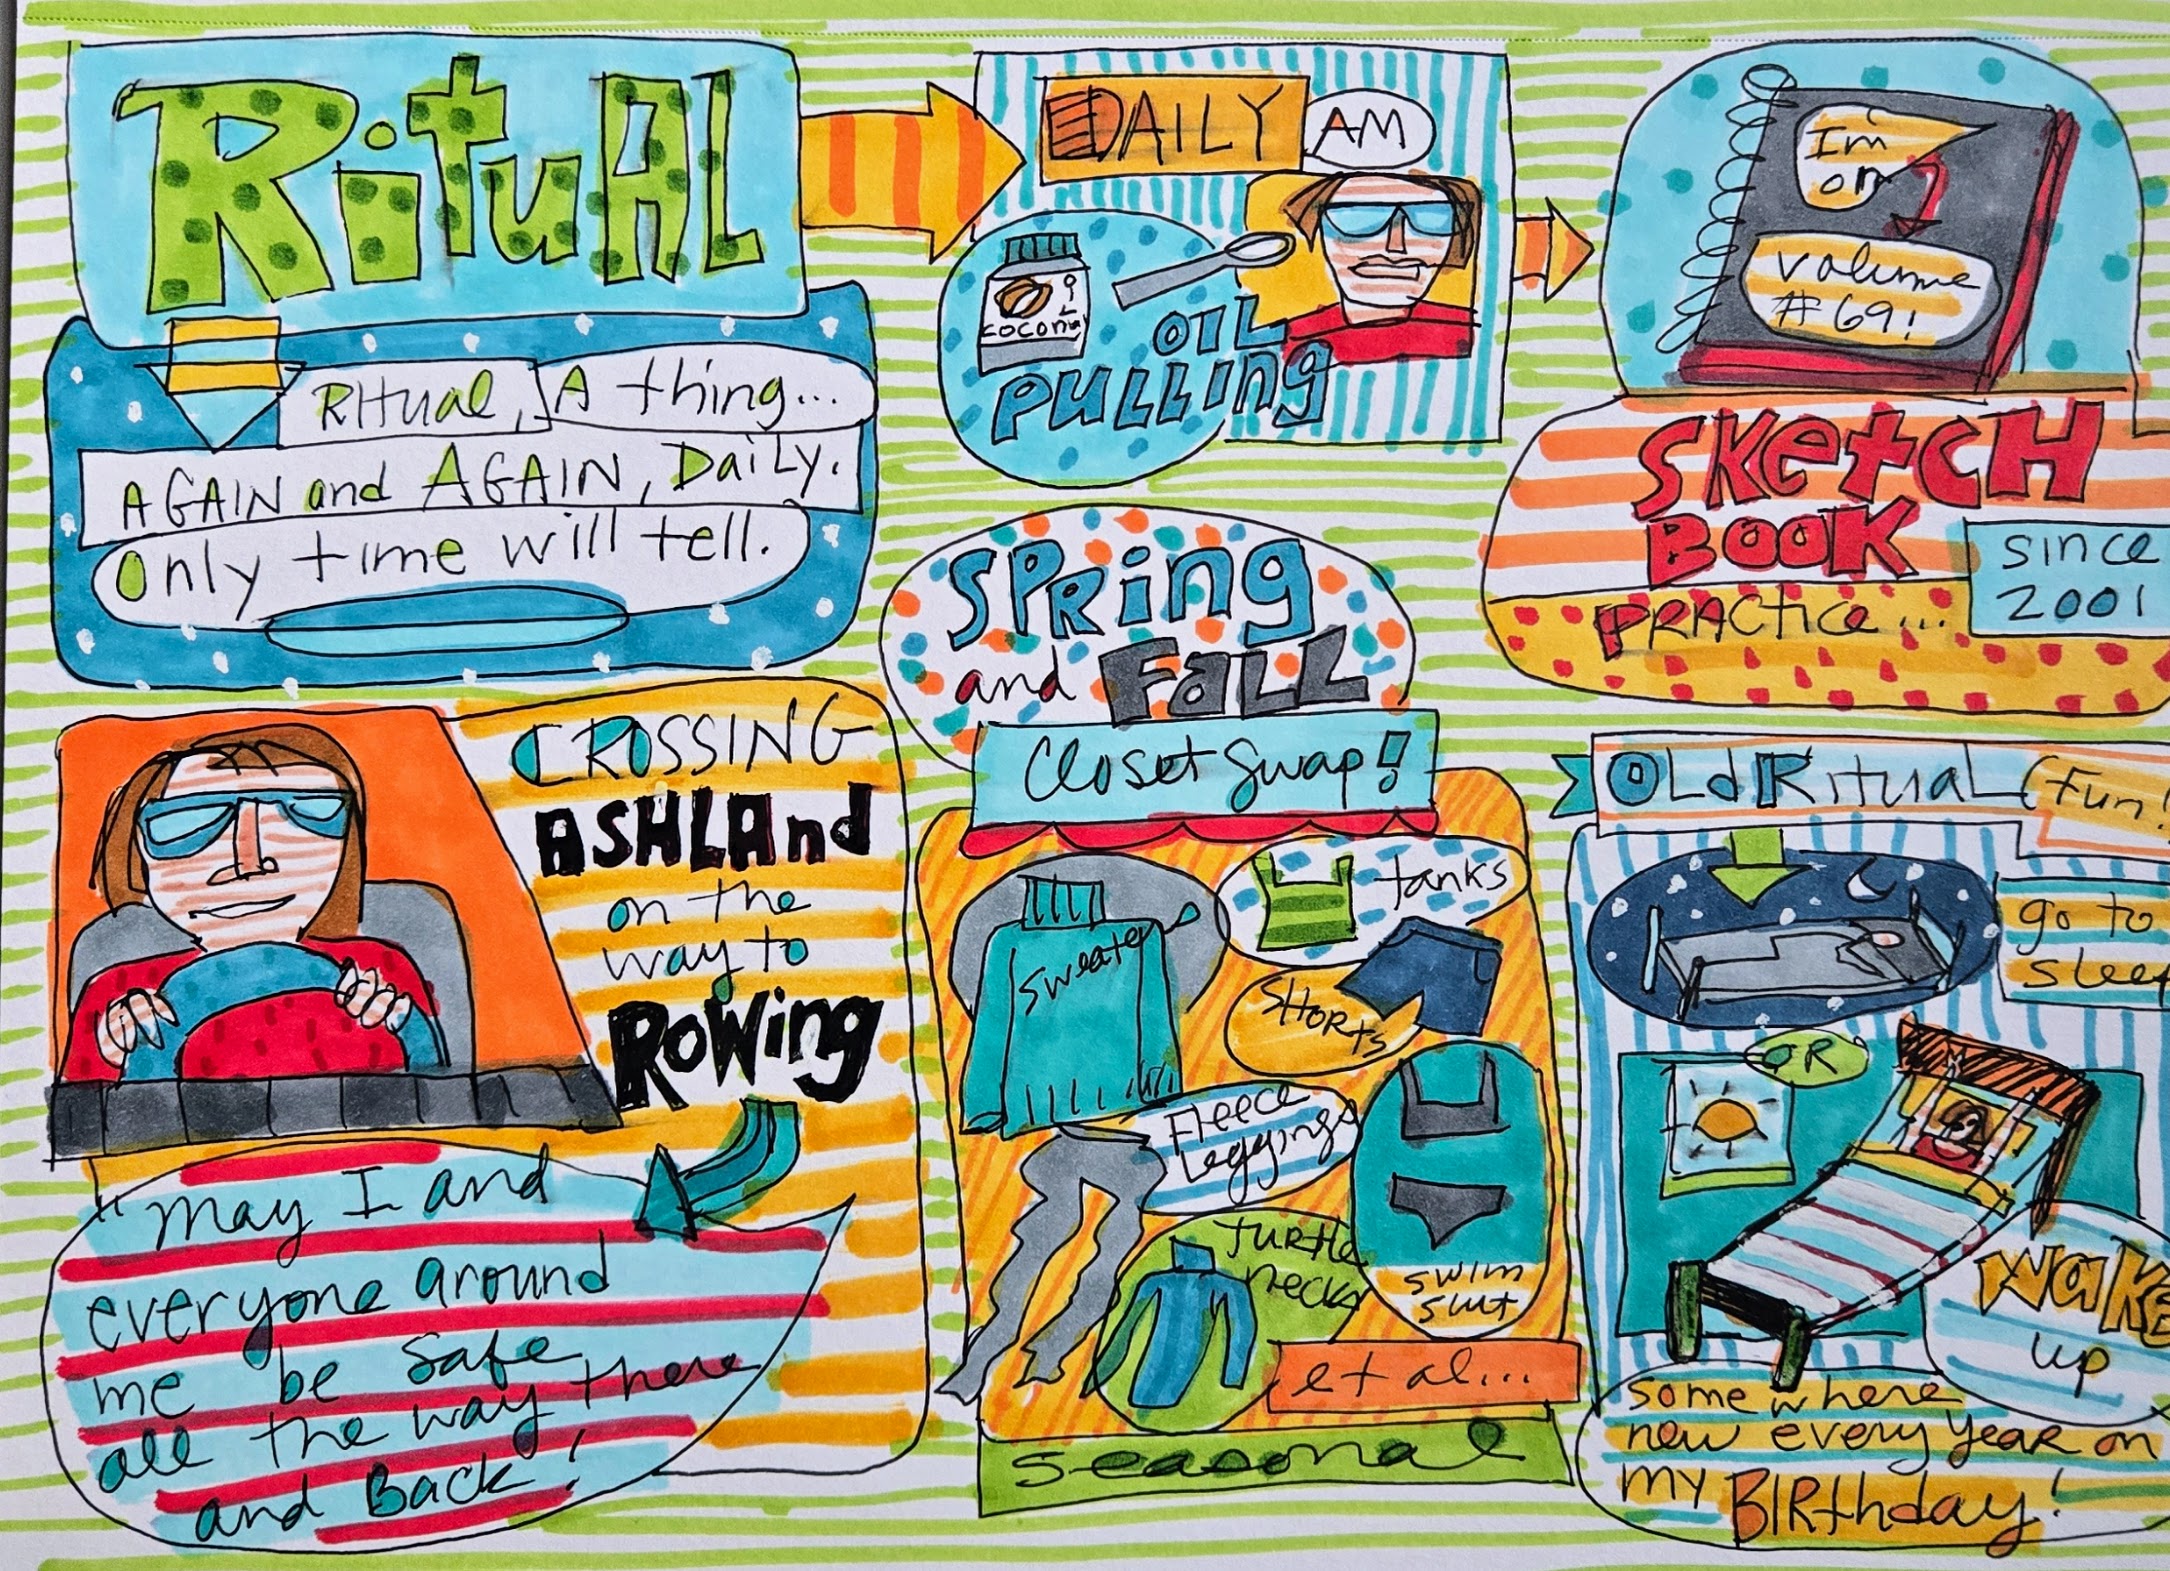 RituAL
Ritual, A thing...
AGAIN and AGAIN, Daily.
Only time will tell.
DAILY AM
OIL
COCONUT
OIL
PULLing
I'm
on
volume
#69!
SKetCH
BOOK
PRACtice...
since
2001
CROSSING
ASHLAnd
on the
way to
RoWing
"May I and
everyone around
me be safe
all the way there
and Back!
SPRing
and FaLL
Closet Swap!
sweater
tanks
SHORts
Fleece
Leggings
turtle
necks
swim
suit
et al...
seasonal
OLd RituaL (Fun!
go to
sleep
OR
WAKE
up
somewhere
new every year on
my BIRthday!